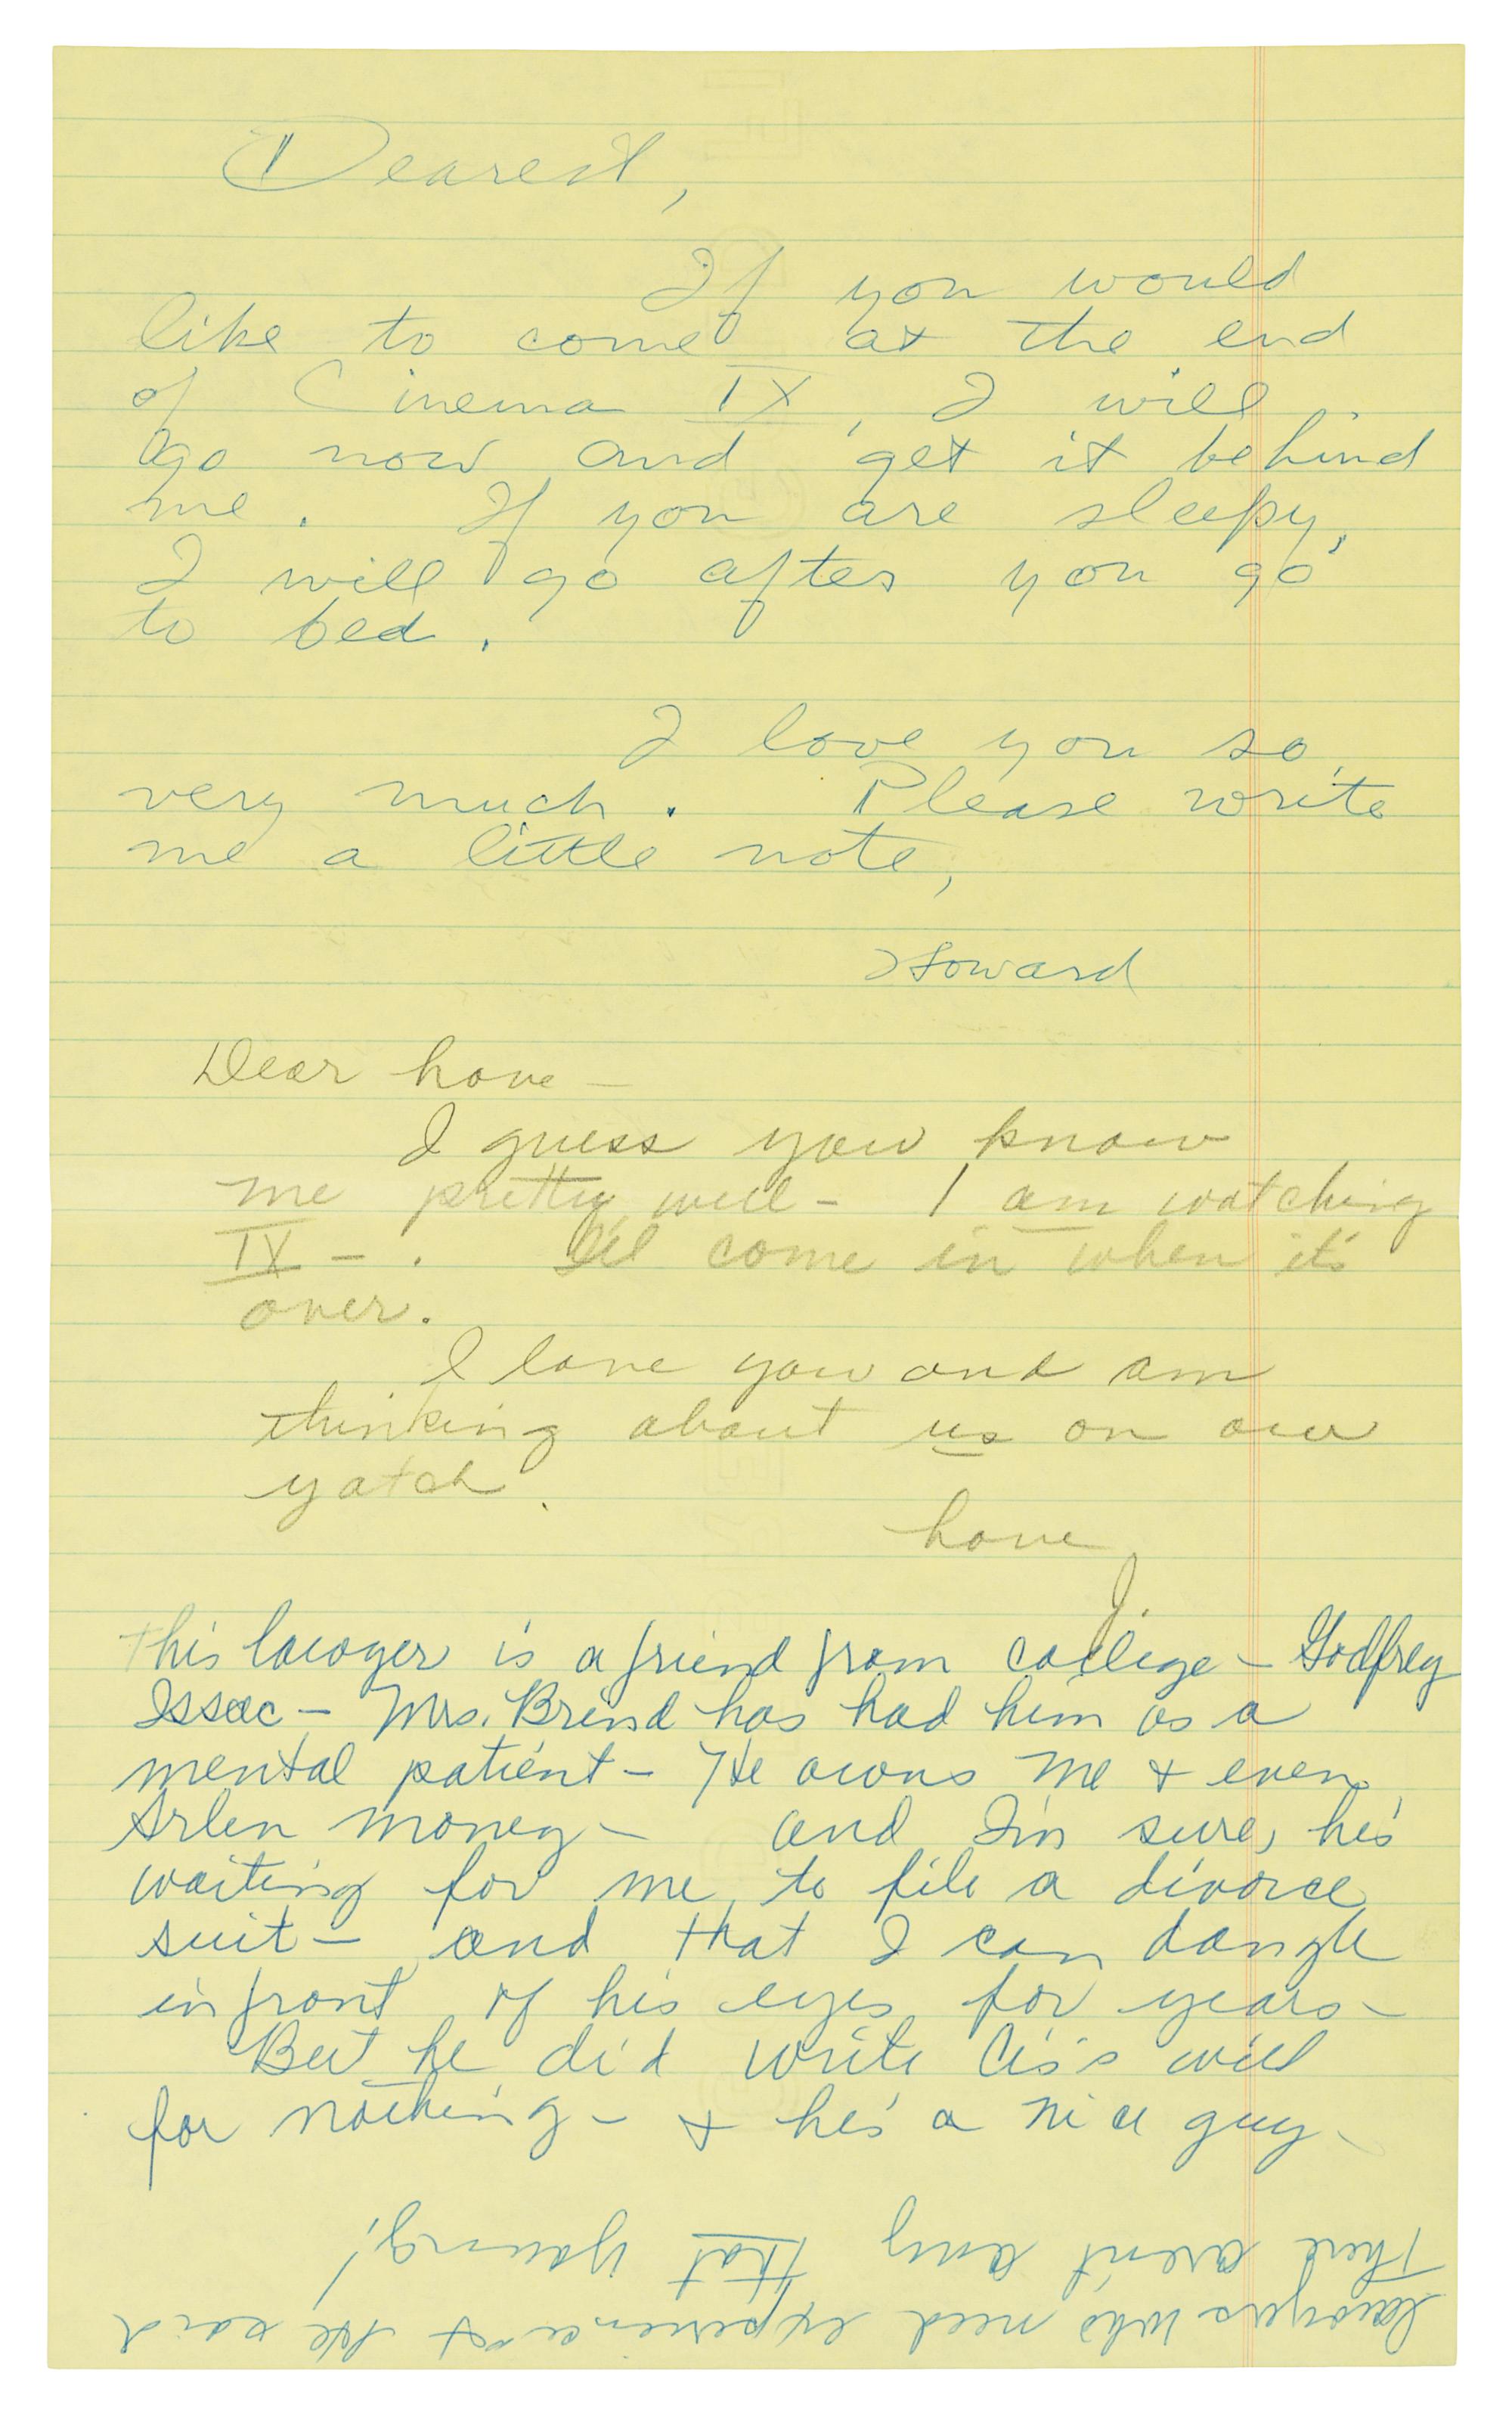 Dearest,
If you would
like to come at the end
of Cinema IX, I will
go now and get it behind
me. If you are sleepy,
I will go after you go
to bed.
I love you so
very much. Please write
me a little note,
Howard
Dear love —
I guess you know
me pretty well – I am watching
IX – . I'll come in when it's
over.
I love you and am
thinking about us on our
yatch.
Love
J.
This lawyer is a friend from college – Godfrey
Issac – Mrs. Brind has had him as a
mental patient – He owns me & even
Arlen money – and I'm sure, he's
waiting for me to file a divorce
suit – and that I can dangle
in front of his eyes for years –
But he did write Cis's will
for nothing – & he's a nice guy –
lawyers who need experience & he said
There aren't any that young!